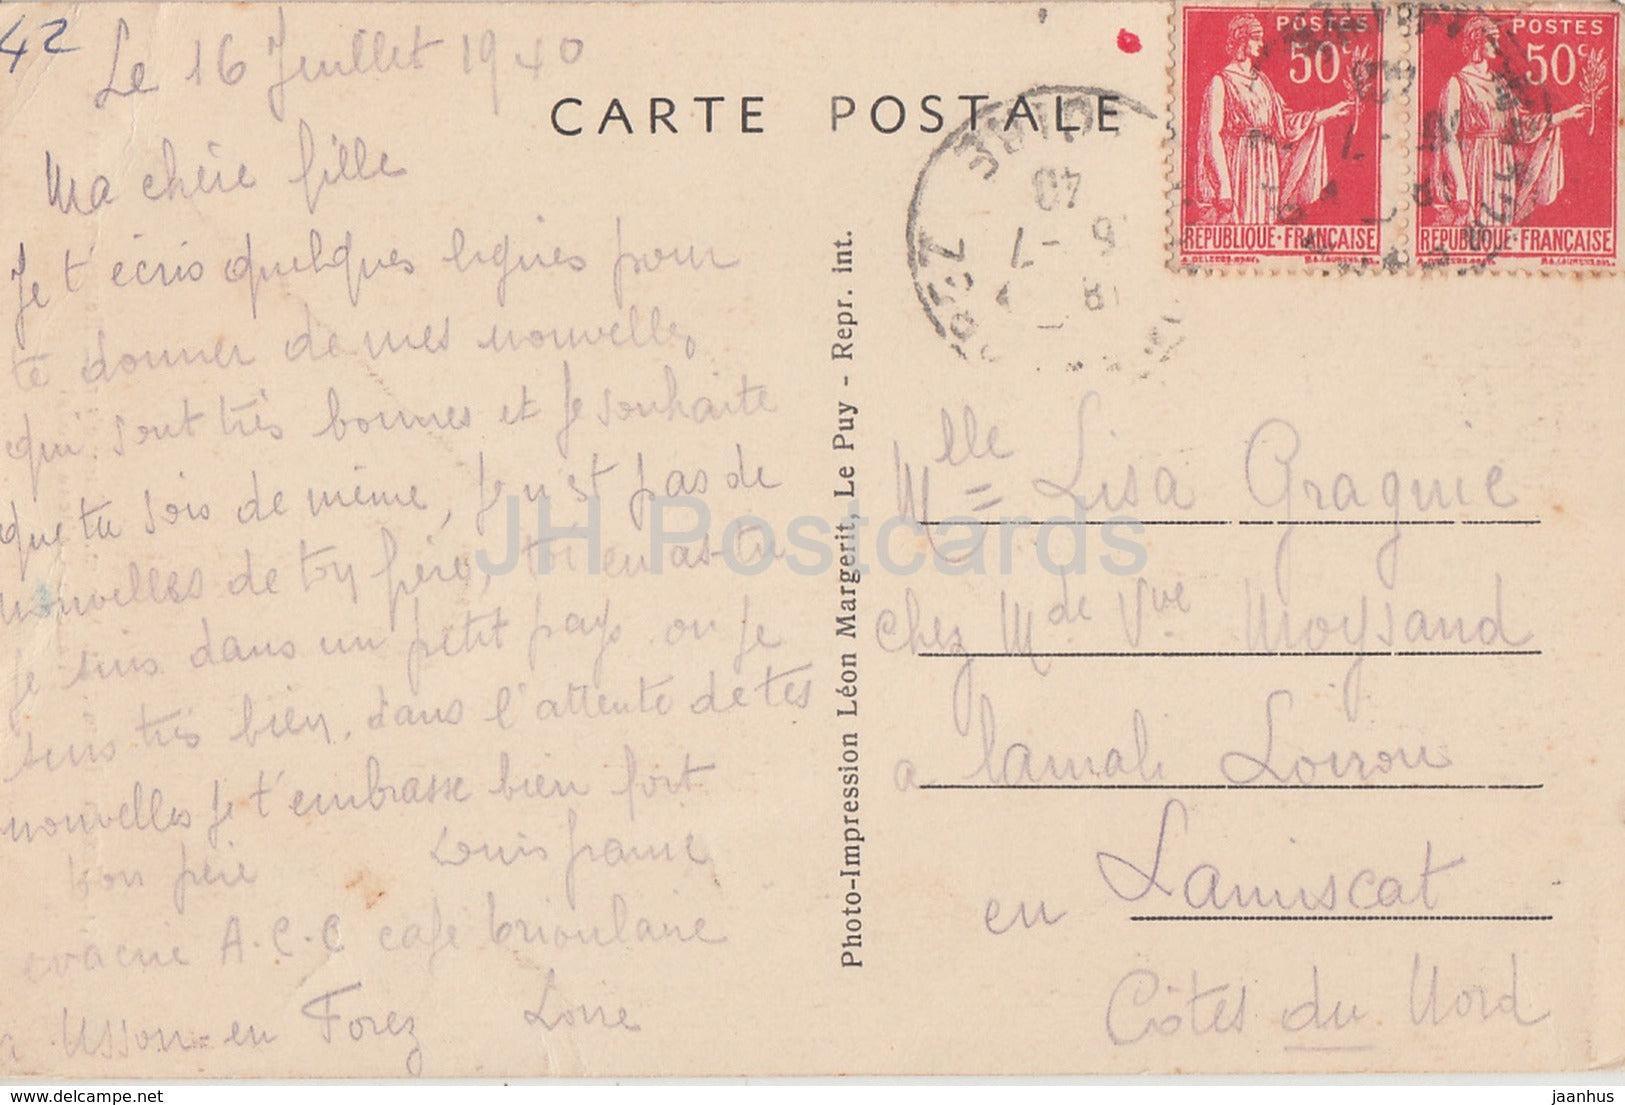 42
Le 16 Juillet 1940
CARTE POSTALE
POSTES
50c
REPUBLIQUE·FRANÇAISE
POSTES
50c
REPUBLIQUE·FRANÇAISE
LOIRE
40
-7
18
Ma chère fille
Je t'écris quelques lignes pour
te donner de mes nouvelles
qui sont très bonnes et Je souhaite
que tu sois de même, Je n'est pas de
nouvelles de ton frère, toi en as-tu
Je suis dans un petit pays ou Je
suis très bien. dans l'attente de tes
nouvelles Je t'embrasse bien fort
ton père Louis
evacué A.C.C café
a Usson-en Forez Loire
Photo-Impression Léon Margerit, Le Puy - Repr. int.
Mlle = Lisa Gragnic
chez Mde Vve Moysand
a
en Laniscat
Côtes du Nord
JH Postcards
www.delcampe.net
jaanhus